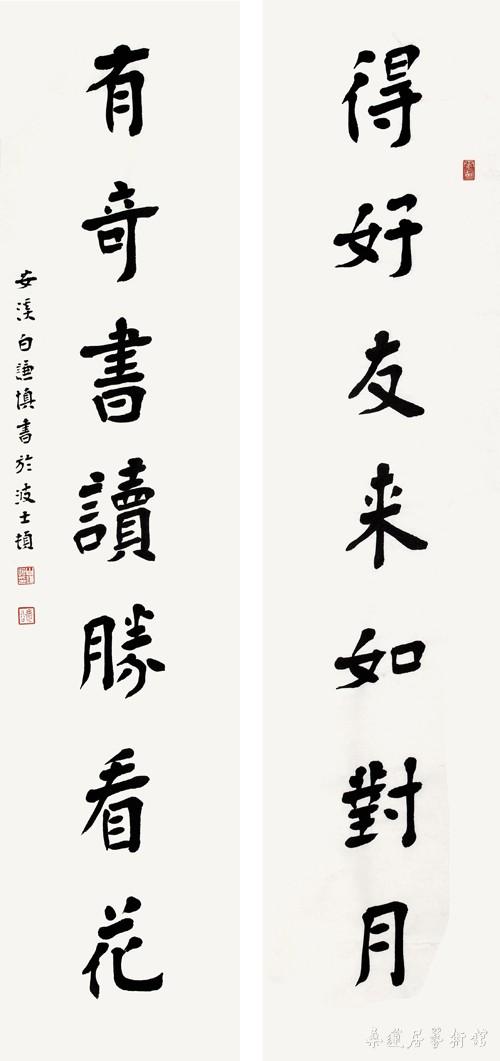 得好友来如對月
有奇書讀勝看花
安溪白謙慎書於波士頓
桑蓮居藝術館